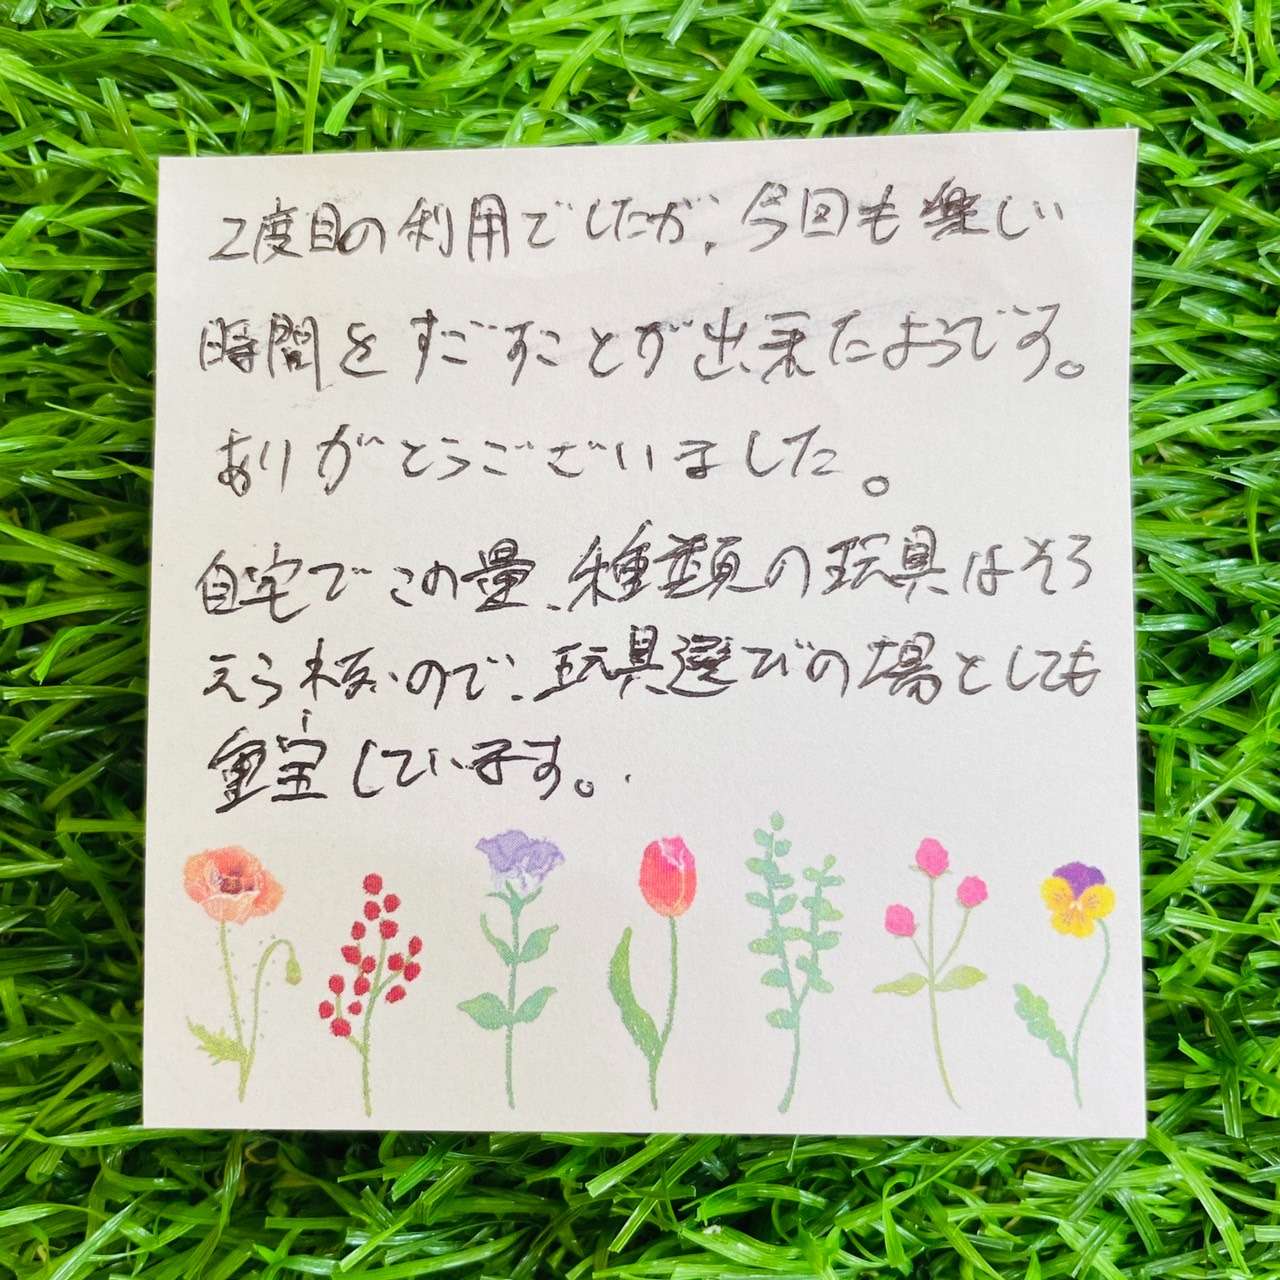 2度目の利用でしたが、今回も楽しい
時間をすごすことが出来たようです。
ありがとうございました。
自宅でこの量、種類の玩具はそろ
えられないので、玩具選びの場としても
重宝しています。